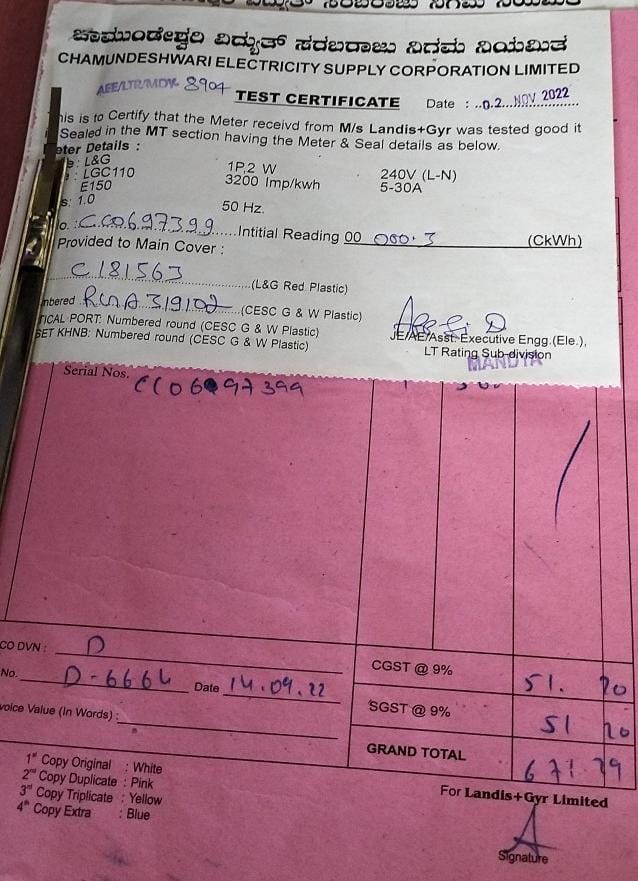 ಚಾಮುಂಡೇಶ್ವರಿ ವಿದ್ಯುತ್ ಸರಬರಾಜು ನಿಗಮ ನಿಯಮಿತ
CHAMUNDESHWARI ELECTRICITY SUPPLY CORPORATION LIMITED
AEE/LTR/MDY- 8904
TEST CERTIFICATE Date : 02 NOV 2022
his is to Certify that the Meter receivd from M/s Landis+Gyr was tested good it
Sealed in the MT section having the Meter & Seal details as below.
eter Details :
: L&G 1P,2 W 240V (L-N)
: LGC110 3200 Imp/kwh 5-30A
E150
s: 1.0 50 Hz.
o. :CC0697399 Intitial Reading 00 000.3 (CkWh)
Provided to Main Cover :
C181563 (L&G Red Plastic)
nbered (CESC G & W Plastic)
ICAL PORT: Numbered round (CESC G & W Plastic)
SET KHNB: Numbered round (CESC G & W Plastic)
JE/AE/Asst. Executive Engg.(Ele.),
LT Rating Sub-division
MANDYA
Serial Nos. CC0697399
CO DVN : D
No. D-6664 Date 14.09.22
voice Value (In Words) :
CGST @ 9% 51. 20
SGST @ 9% 51 20
GRAND TOTAL 671.29
1st Copy Original : White
2nd Copy Duplicate : Pink
3rd Copy Triplicate : Yellow
4th Copy Extra : Blue
For Landis+Gyr Limited
Signature